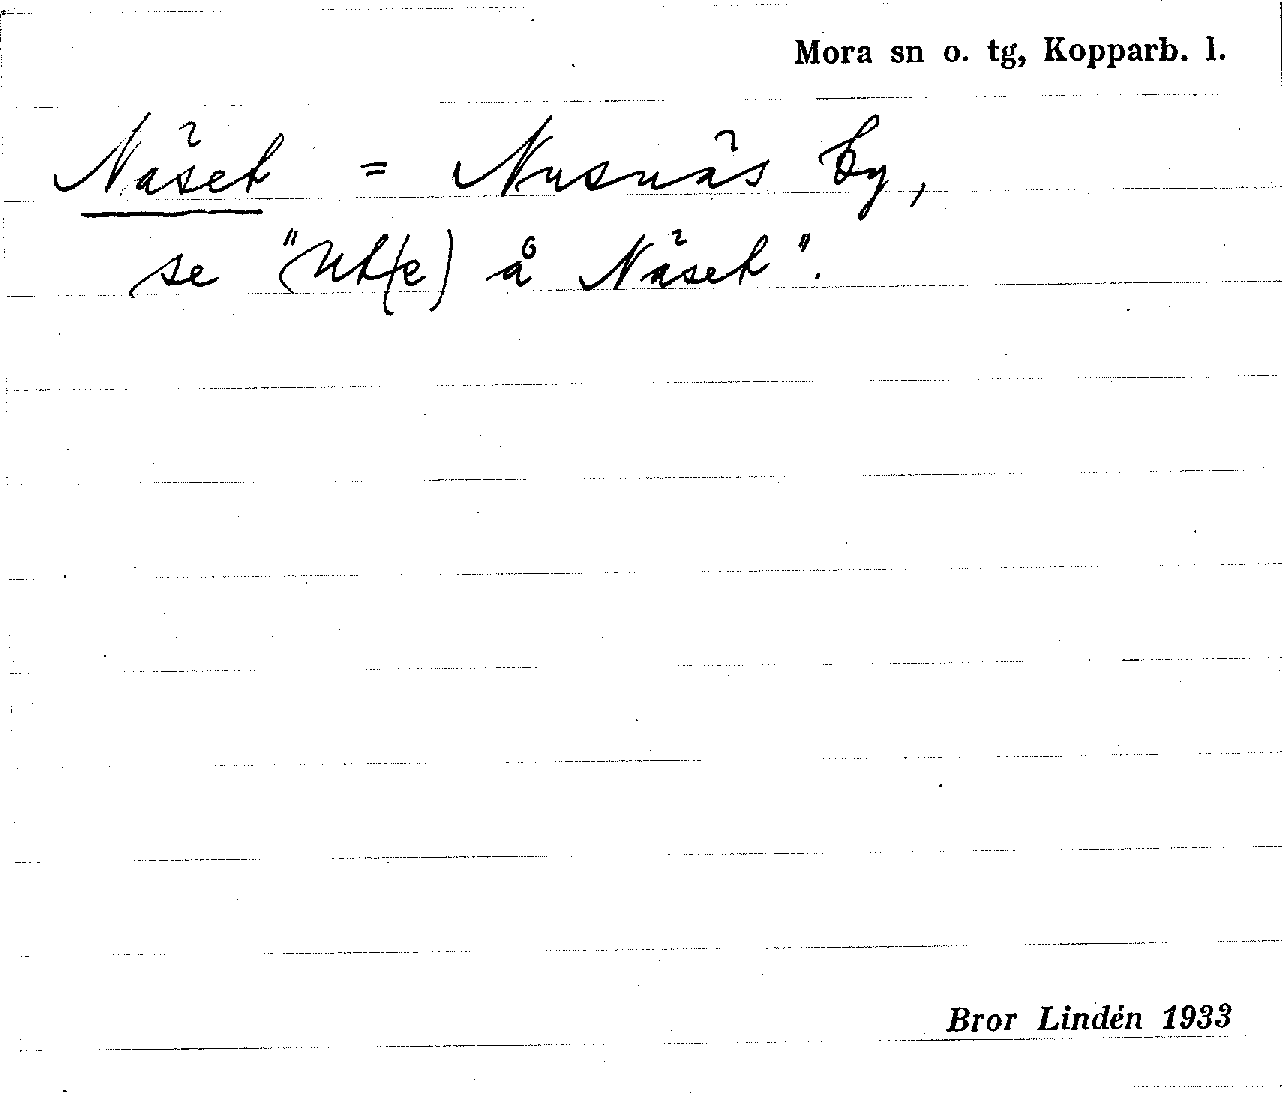 Mora sn o. tg, Kopparb. l.
Näset = Nusnäs by,
se "(Ut(e) å Näset".
Bror Lindén 1933